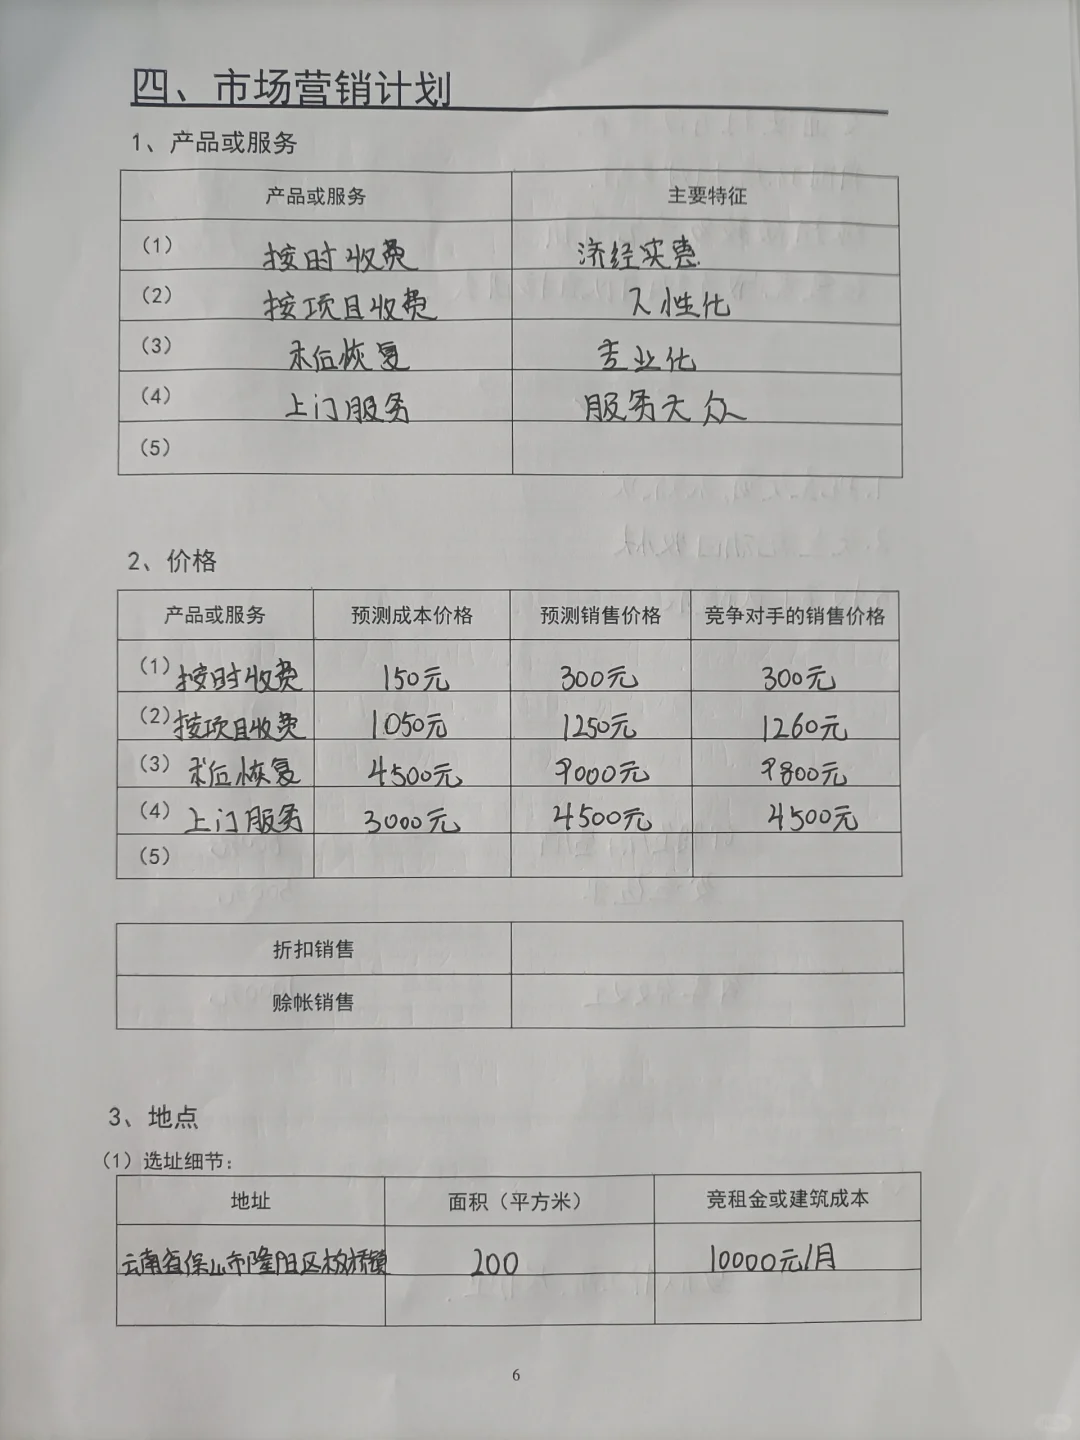 四、市场营销计划
1、产品或服务
产品或服务 主要特征
(1) 按时收费 济经实惠
(2) 按项目收费 人性化
(3) 术后恢复 专业化
(4) 上门服务 服务大众
(5)
2、价格
产品或服务 预测成本价格 预测销售价格 竞争对手的销售价格
(1) 按时收费 150元 300元 300元
(2) 按项目收费 1050元 1250元 1260元
(3) 术后恢复 4500元 9000元 9800元
(4) 上门服务 3000元 4500元 4500元
(5)
折扣销售
赊帐销售
3、地点
(1)选址细节:
地址 面积(平方米) 竞租金或建筑成本
云南省保山市隆阳区板桥镇 200 10000元/月
6